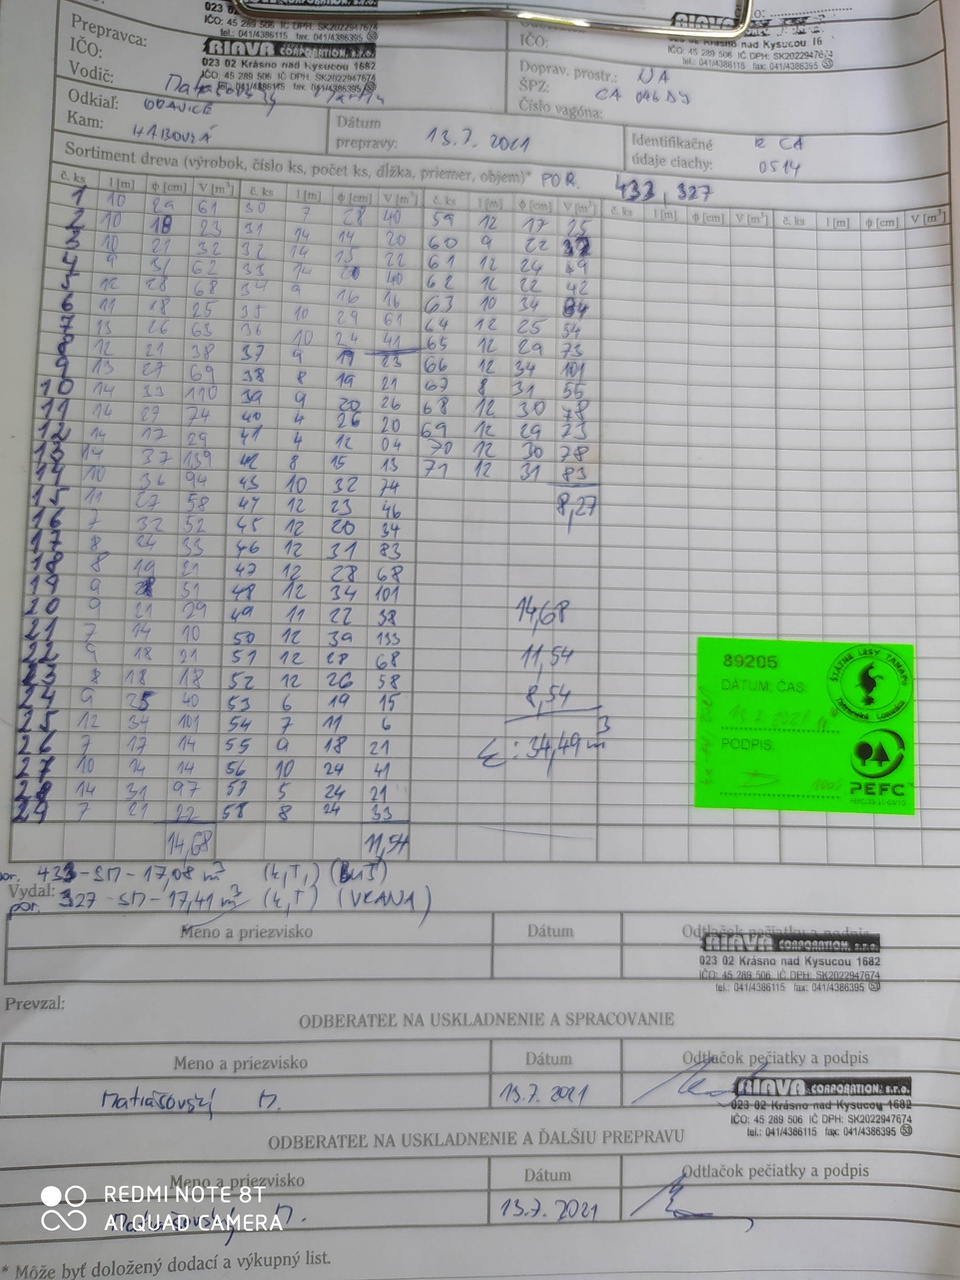 023 0
IČO: 45 289 506 IČ DPH: SK2022947674
tel.: 041/4386115 fax: 041/4386395
Prepravca:
RIAVA CORPORATION, s.r.o.
023 02 Krásno nad Kysucou 1682
IČO: 45 289 506 IČ DPH: SK2022947674
tel.: 041/4386115 fax: 041/4386395
IČO:
Vodič:
Odkiaľ: ORAVICE
Kam: HABOVKA
Dátum prepravy: 13.7.2021
IČO:
RIAVA CORPORATION, s.r.o.
Krásno nad Kysucou 16
IČO: 45 289 506 IČ DPH: SK2022947674
tel.: 041/4386115 fax: 041/4386395
Doprav. prostr.: NA
ŠPZ: CA 046 DJ
Číslo vagóna:
Identifikačné údaje ciachy: R CA 0514
Sortiment dreva (výrobok, číslo ks, počet ks, dĺžka, priemer, objem)* POR. 433, 327
č. ks l [m] φ [cm] V [m³] č. ks l [m] φ [cm] V [m³] č. ks l [m] φ [cm] V [m³] č. ks l [m] φ [cm] V [m³] č. ks l [m] φ [cm] V [m³]
1 10 29 61 30 7 28 40 59 12 17 25
2 10 18 23 31 14 14 20 60 9 22
3 10 21 32 32 14 15 22 61 12 24 49
4 9 31 62 33 14 20 40 62 12 22 42
5 12 28 68 34 9 16 16 63 10 34 84
6 11 18 25 35 10 29 61 64 12 25 54
7 13 26 63 36 10 24 41 65 12 29 73
8 12 21 38 37 9 19 23 66 12 34 101
9 13 27 69 38 8 19 21 67 8 31 55
10 14 33 110 39 9 20 26 68 12 30 78
11 14 27 74 40 4 26 20 69 12 29 73
12 14 17 29 41 4 12 04 70 12 30 78
13 14 37 139 42 8 15 13 71 12 31 83
14 10 36 94 43 10 32 74
8,27
15 11 27 58 44 12 23 46
16 7 32 52 45 12 20 34
17 8 24 33 46 12 31 83
18 8 19 21 47 12 28 68
19 9 31 48 12 34 101
20 9 21 29 49 11 22 38 14,68
21 7 14 10 50 12 39 133
22 9 18 21 51 12 28 68 11,54
23 8 18 18 52 12 26 58
24 9 25 40 53 6 19 15 8,54
25 12 34 101 54 7 11 6
26 7 17 14 55 9 18 21 Σ: 34,49 m³
27 10 14 14 56 10 24 41
28 14 31 97 57 5 24 21
29 7 21 22 58 8 24 33
14,68 11,54
89205
DÁTUM, ČAS:
13.7.2021
PODPIS:
ŠTÁTNE LESY TANAPU
Tatranská Lomnica
PEFC
por. 433-SM-17,08 m³ (k,T,)
Vydal:
por. 327-SM-17,41 m³ (k,T)
Meno a priezvisko Dátum Odtlačok pečiatky a podpis
RIAVA CORPORATION, s.r.o.
023 02 Krásno nad Kysucou 1682
IČO: 45 289 506 IČ DPH: SK2022947674
tel.: 041/4386115 fax: 041/4386395
Prevzal:
ODBERATEĽ NA USKLADNENIE A SPRACOVANIE
Meno a priezvisko Dátum Odtlačok pečiatky a podpis
Matiašovský M. 13.7.2021
RIAVA CORPORATION, s.r.o.
023 02 Krásno nad Kysucou 1682
IČO: 45 289 506 IČ DPH: SK2022947674
tel.: 041/4386115 fax: 041/4386395
ODBERATEĽ NA USKLADNENIE A ĎALŠIU PREPRAVU
Meno a priezvisko Dátum Odtlačok pečiatky a podpis
Matiašovský M. 13.7.2021
REDMI NOTE 8T
AI QUAD CAMERA
* Môže byť doložený dodací a výkupný list.